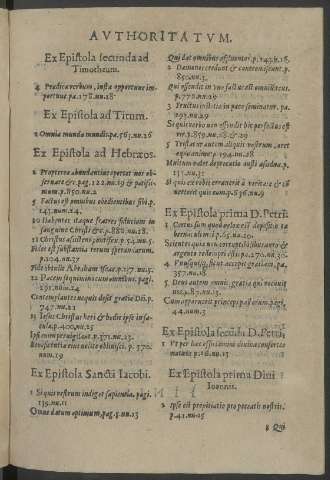 AVTHORITATVM.
Ex Epistola secunda ad
Timotheum.
4 Prædica verbum, insta opportune im-
portune pa.178.nu.28
Ex Epistola ad Titum.
2 Omnia munda mundis.pa.563.nu.26
Ex Epistola ad Hebræos.
2 Propterea abundantius oportet nos ob-
seruare &c. pag.122.nu.19 &
5 Factus est omnibus obedientibus sibi.p.
143.num.24.
10 Habentes itaque fratres fiduciam in
sanguine Christi &c.p.880.nu.28.
11 Christus assistens pontifex.p.54.nu.5.
Fides est substantia rerum sperandarum.
p.104.nu.37
Fide obtulit Abraham Isaac.p.117.nu.5.
12 Pacem sequimini cum omnibus.pag.
num.24
Contemplantes nequis desit gratiæ Dei.p.
747.nu.22
13 Iesus Christus heri & hodie ipse in sæ-
cula.p.400.nu.25
Ipsi enim peruigilant.p.371.nu.23.
Beneficentiæ nolite obliuisci. p.570.
num.19
Ex Epistola Sancti Iacobi.
1 Si quis vestrum indiget sapientia. pag.
139.nu.11
Omne datum optimum.pag.5.nu.13
Qui dat omnibus affluenter.p.143.n.18.
2 Dæmones credunt & contremiscunt.p.
850.nu.3.
Qui offendit in vno factus est omniū reus.
p.778.nu.28
3 Fructus iustitiæ in pace seminatur. pa.
293.nu.29
Si quis verbo non offendit hic perfectus est
vir.p.859.nu.28.& 29
5 Tristatur autem aliquis vestrum, oret
æquo animo.p.194.nu.28
Multum valet deprecatio iusti assidua.p.
131.nu.3.
Si quis ex vobis errauerit à veritate & cō
uerterit quis eum.p.686.nu.9
Ex Epistola prima D. Petri.
1 Certus sum quod velox est depositio ta
bernaculi mei.p.65.nu.20.
Scientes quia non corruptibilibus auro &
argento redempti estis.pa.170.nu.30.
4 Vnusquisque sicut accepit gratiam.pa.
357.nu.
5 Deus autem omnis gratiæ qui vocauit
nos.p.87.nu.13.
Cum apparuerit princeps pastorum.pag.
44.num.3
Ex Epistola secūda D. Petri.
1 Vt per hæc efficiamini diuinæ consortes
naturæ p.16.nu.13
Ex Epistola prima Diui
Ioannis.
2 Ipse est propitiatio pro peccatis nostris.
p.41.nu.25
8 Qui